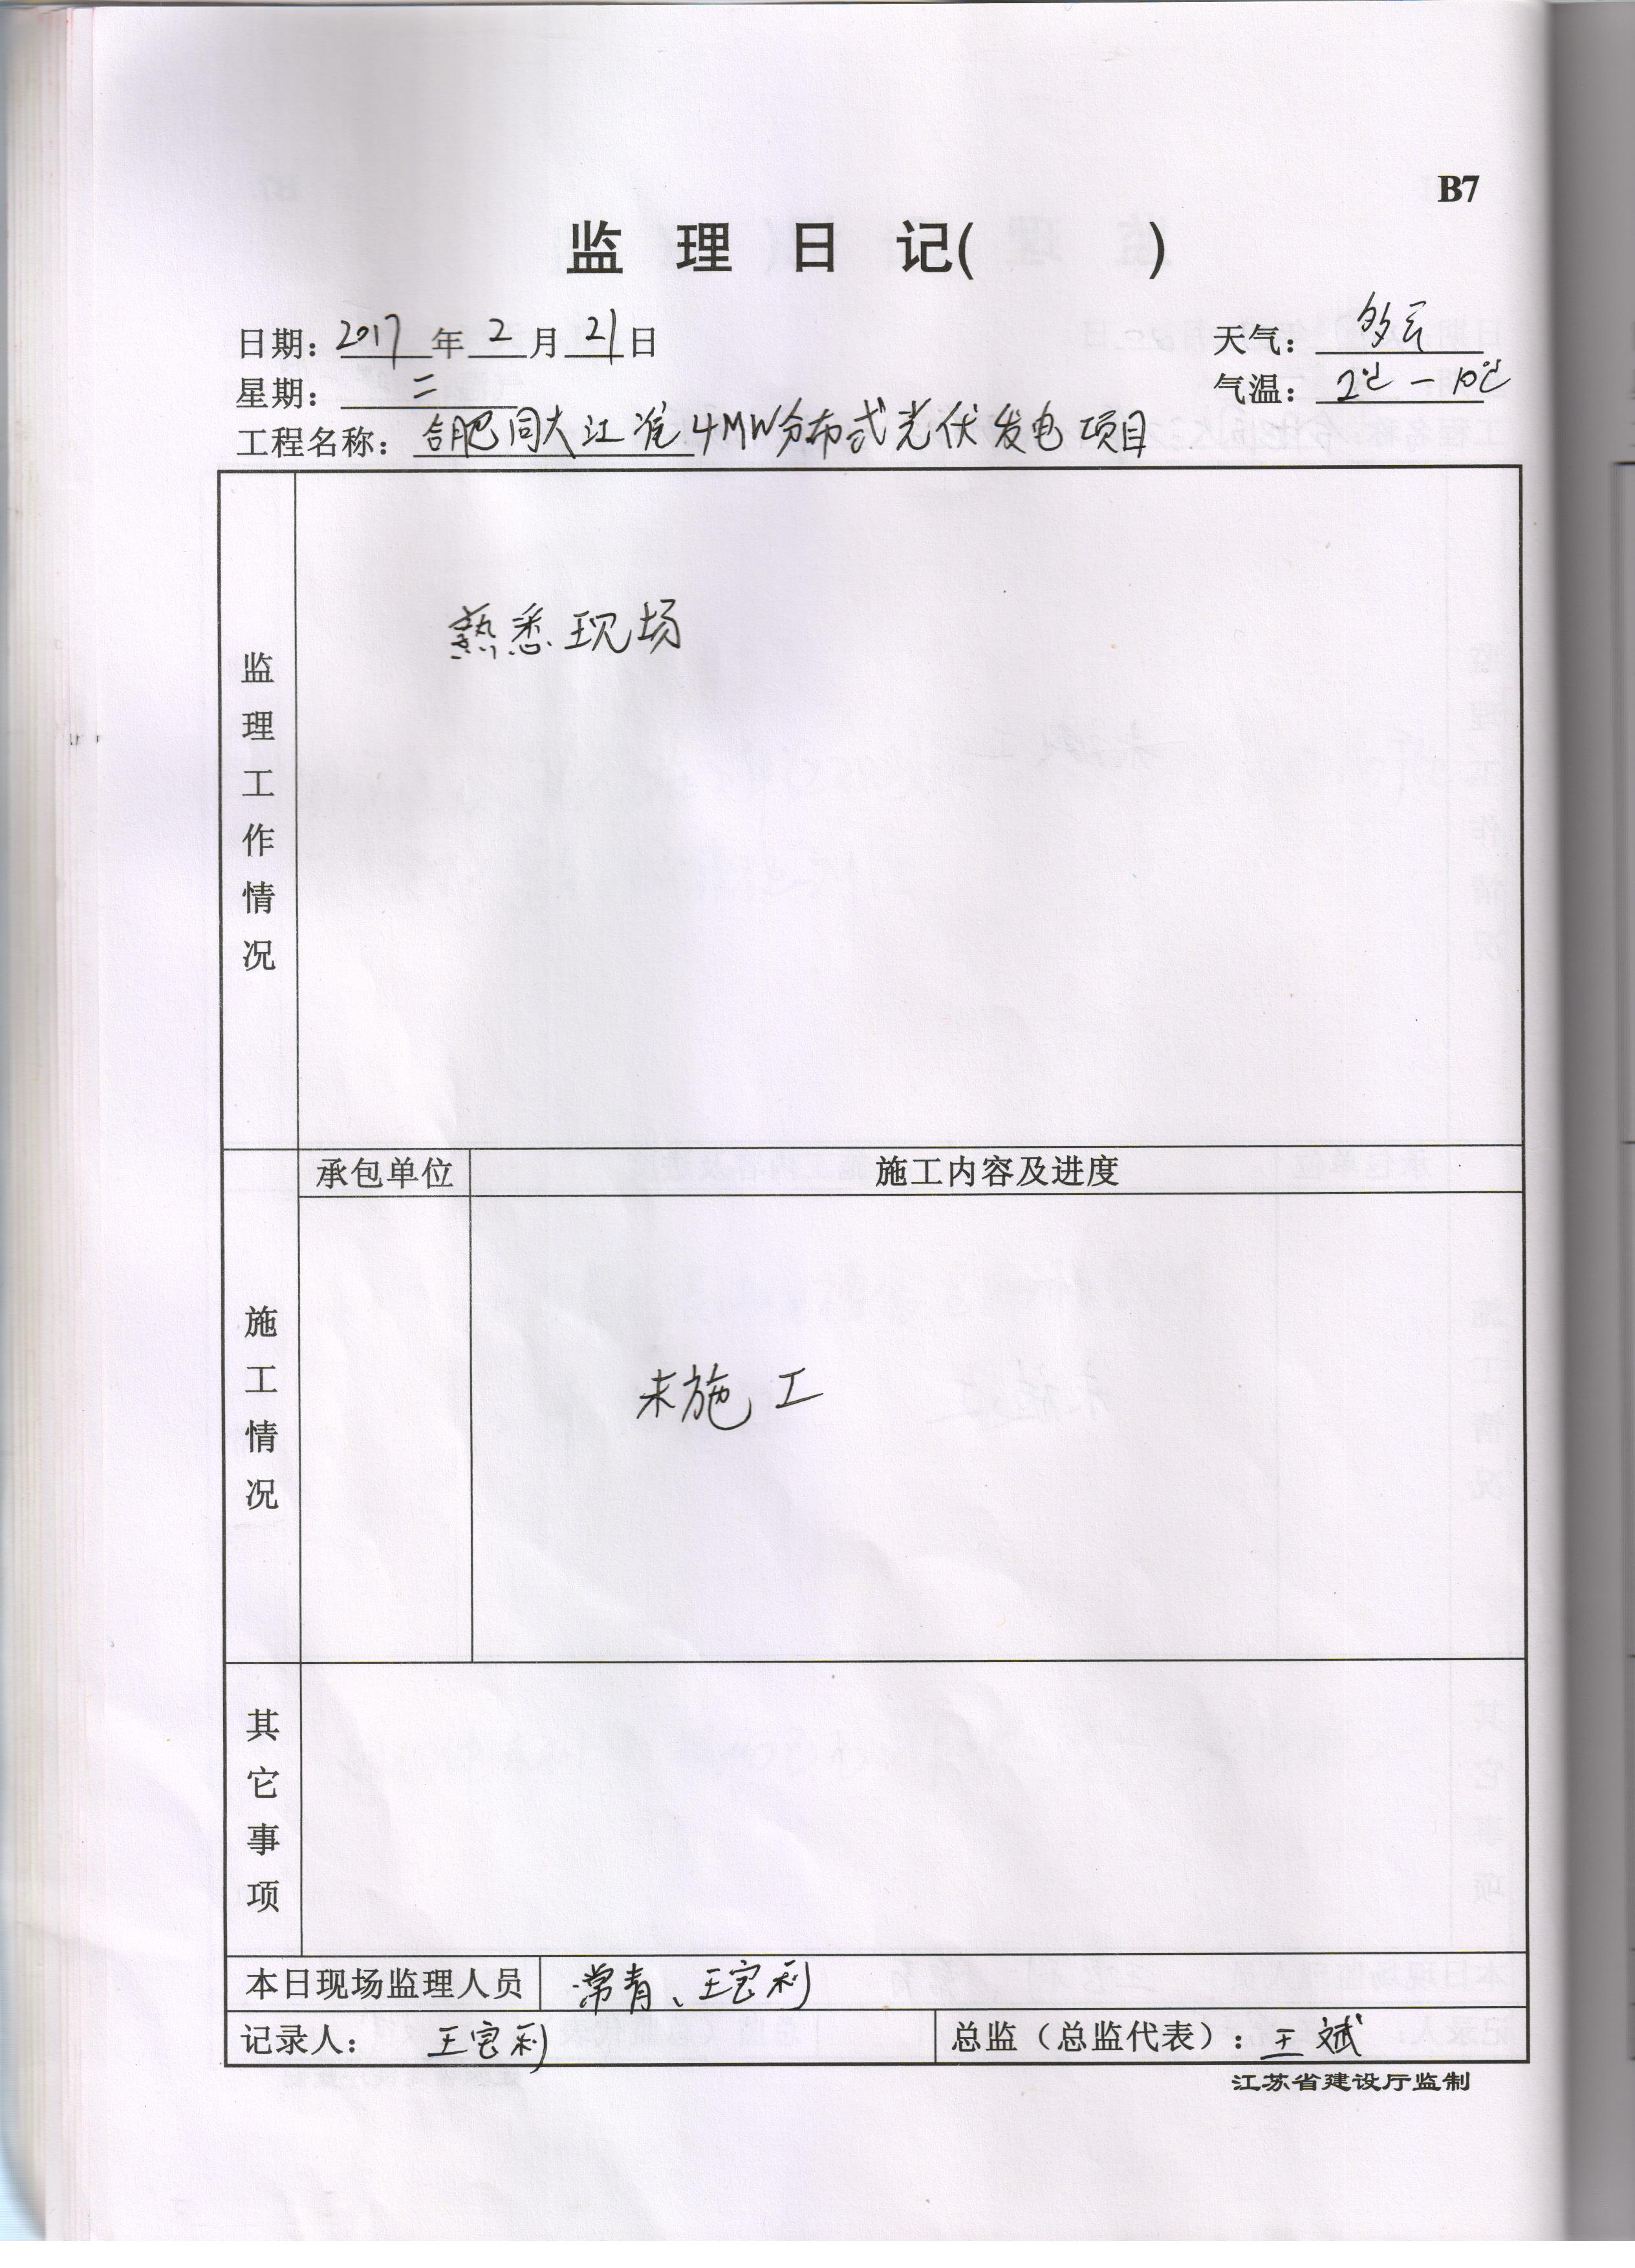 B7
监理日记( )
日期：2017年2月21日 天气：多云
星期：二 气温：2℃—10℃
工程名称：合肥同大江淮4MW分布式光伏发电项目
监理工作情况
熟悉现场
承包单位 施工内容及进度
施工情况
未施工
其它事项
本日现场监理人员 常青、王宝利
记录人：王宝利 总监（总监代表）：王斌
江苏省建设厅监制